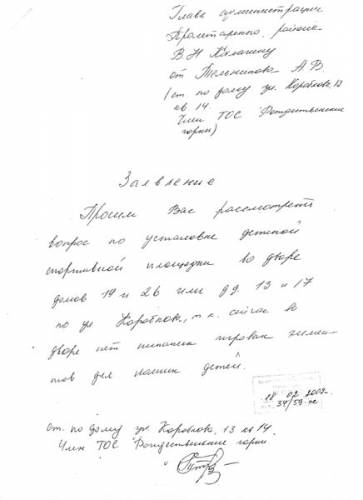 Главе администрации
Пролетарского района
В Н Калашину
от Тельникова А.В.
(ст по дому ул. Коробкова, 13
кв 14
Член ТОС "Рождественские
горки)
Заявление
Просим Вас рассмотреть
вопрос по установке детской
спортивной площадки во дворе
домов 19 и 26 или дд 13 и 17
по ул Коробкова, т.к. сейчас во
дворе нет никаких игровых элемен
тов для наших детей.
18 02 2009
34/59-
ст. по дому ул Коробкова, 13 кв 14.
Член ТОС "Рождественские горки